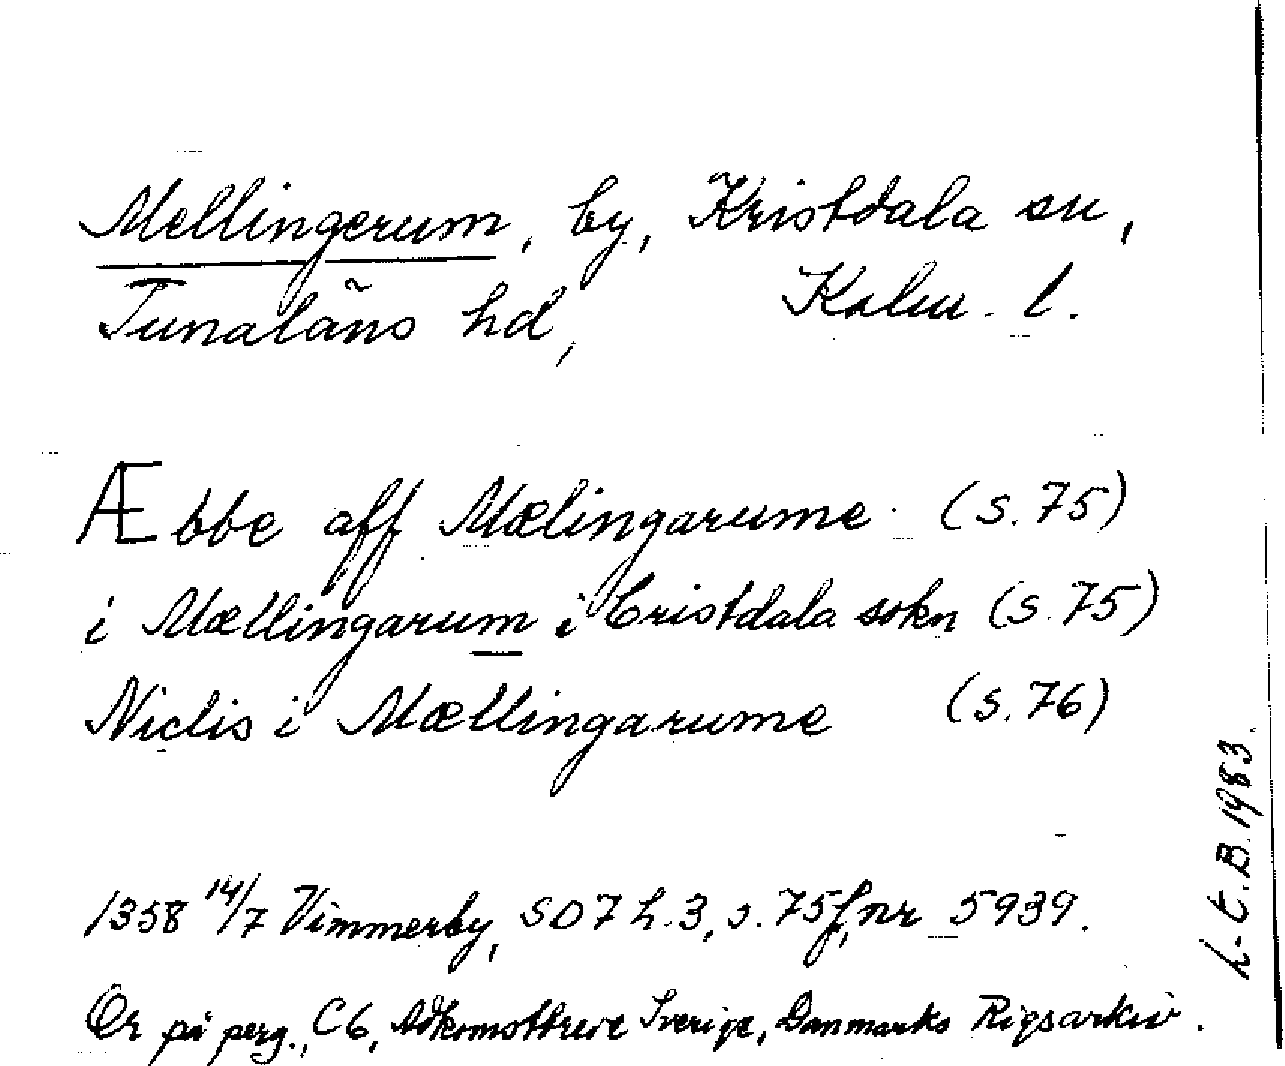 Mellingerum, by, Kristdala sn,
Tunaläns hd, Kalm. l.
Æbbe aff Mælingarume (s.75)
i Mællingarum i Cristdala sokn (s.75)
Niclis i Mællingarume (s.76)
1358 14/7 Vimmerby, SD 7 h.3, s.75f, nr 5939.
Or på perg., C6, Adkomstbreve Sverige, Danmarks Rigsarkiv.
L-E.B. 1983.